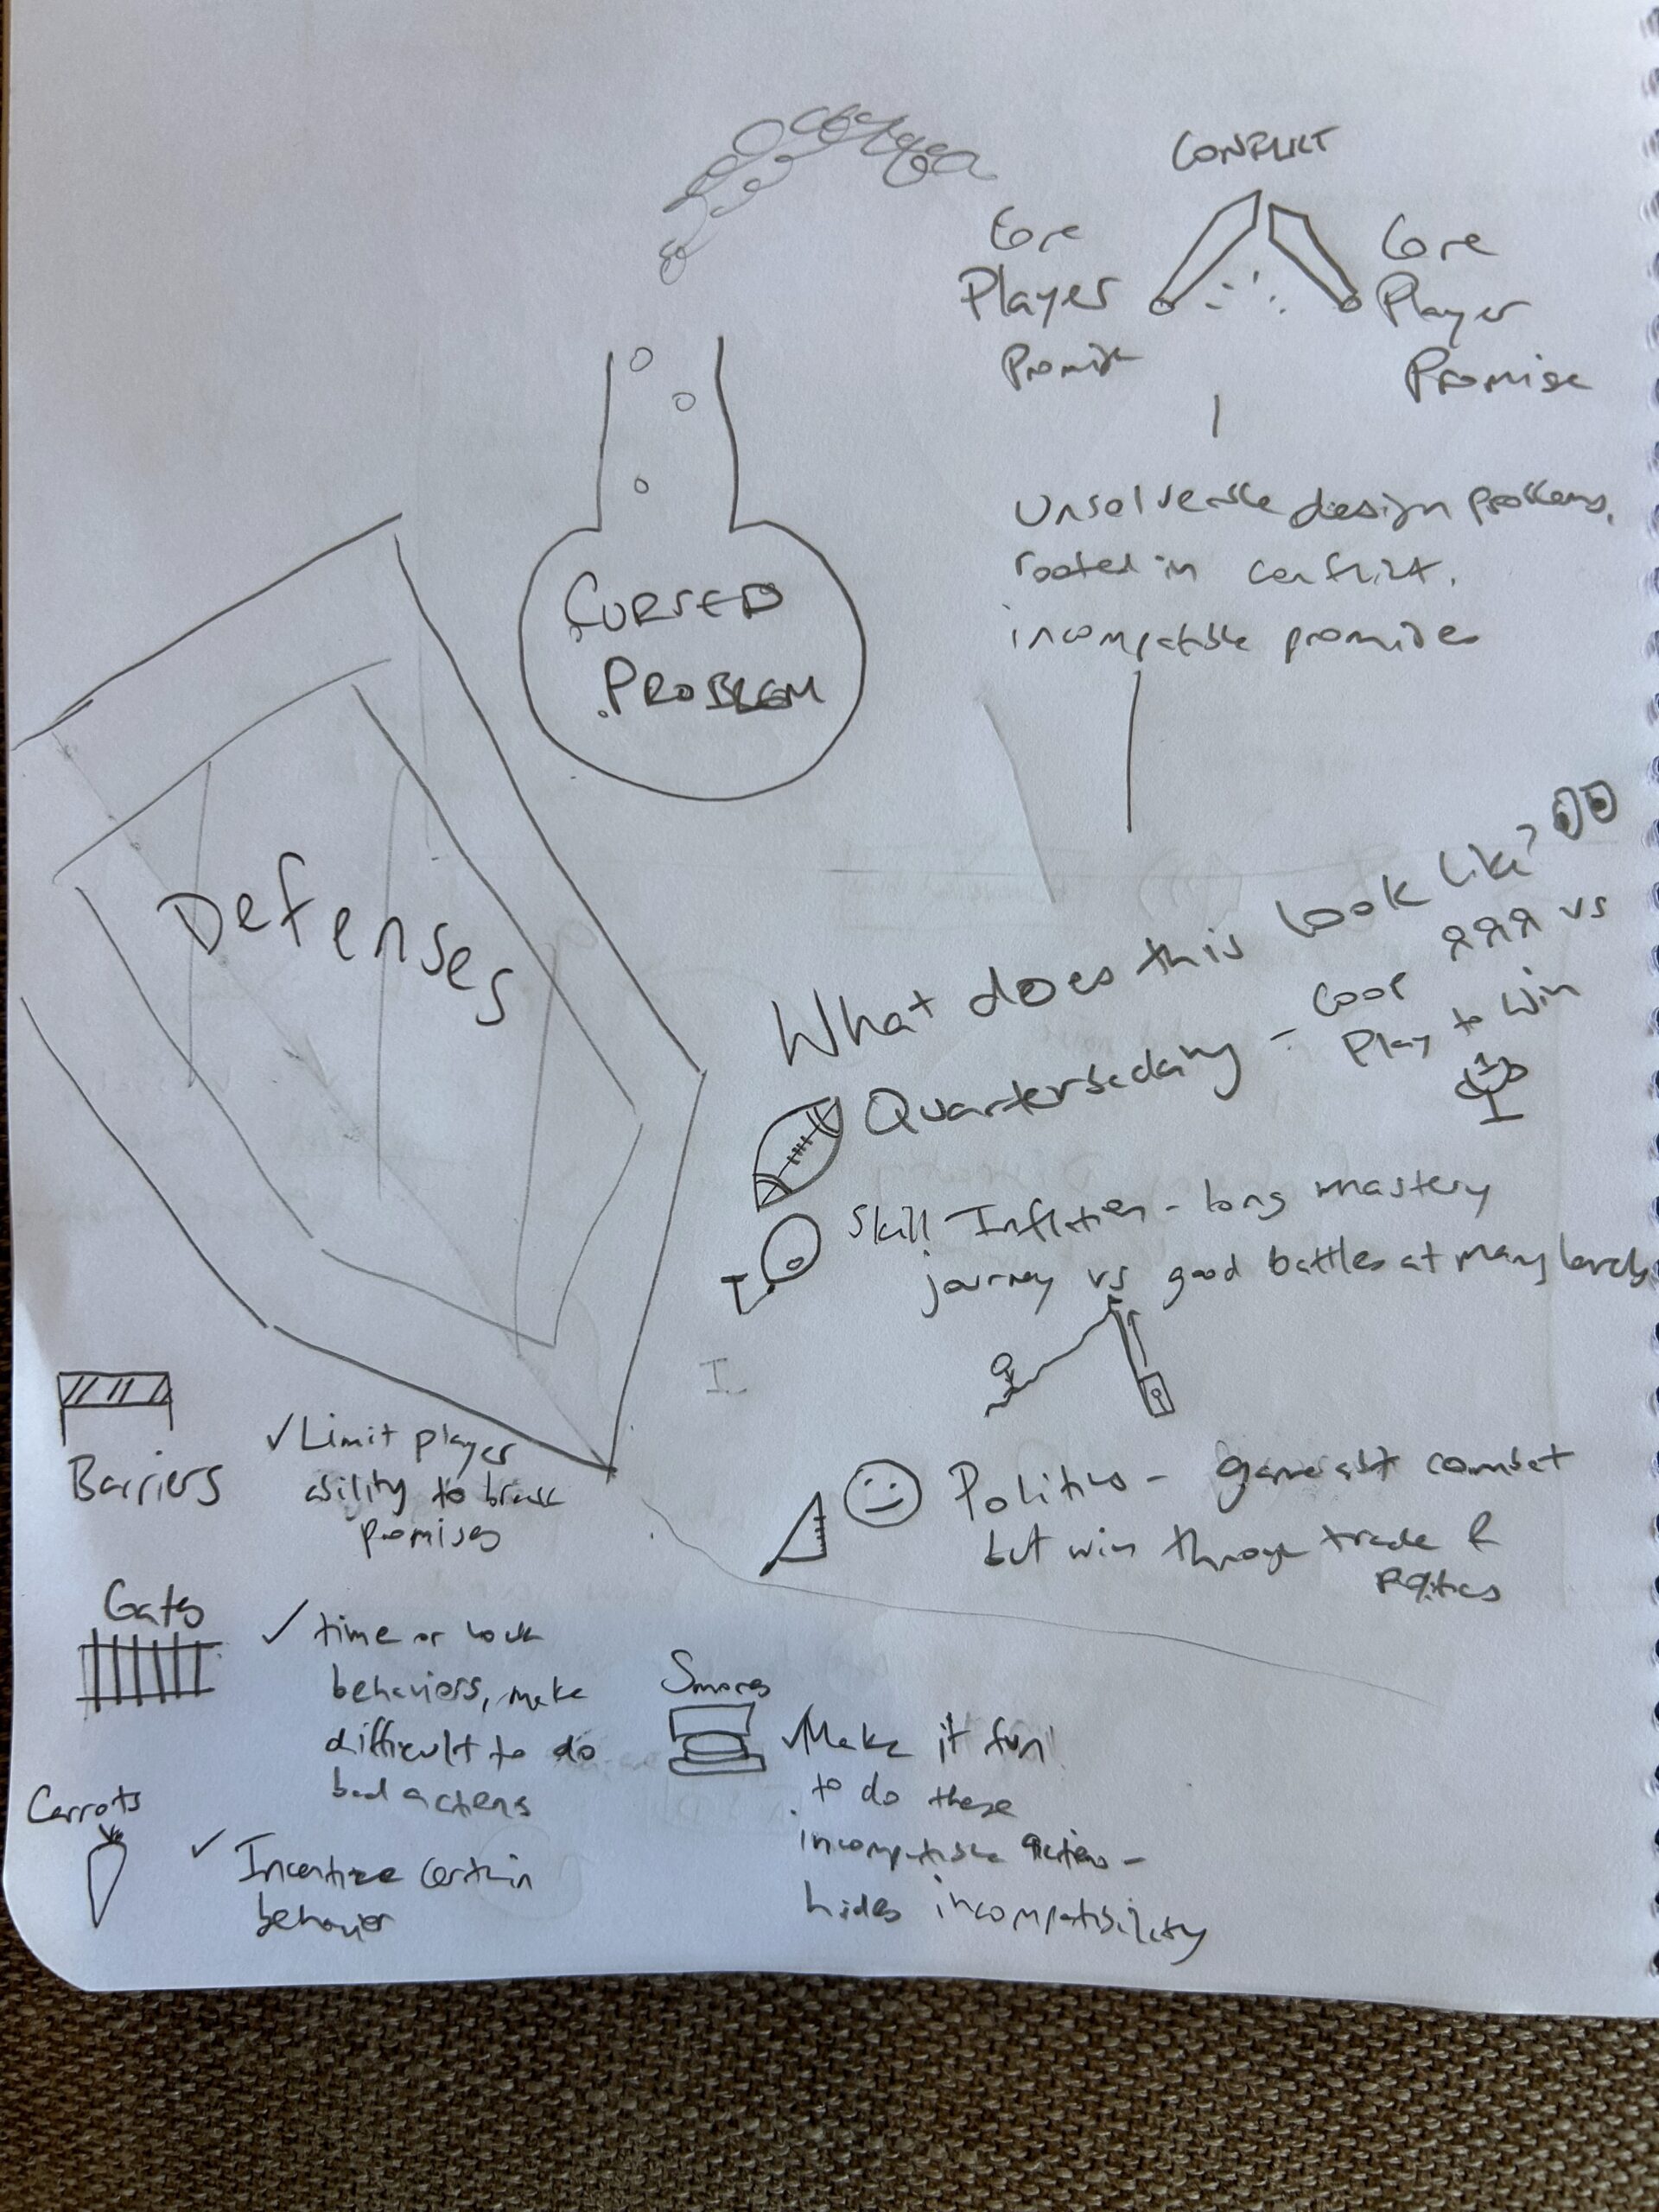 CONFLICT
Core
Player
Promise
Core
Player
Promise
Unsolveable design problems,
rooted in conflict.
incompatible promises
CURSED
PROBLEM
Defenses
What does this look like?
Quarterbacking - coop vs
Play to win
Skill Inflation - long mastery
journey vs good battles at many levels
I
Politics - game abt combat
but win through trade &
Politics
Barriers
✓ Limit player
ability to break
promises
Gates
✓ time or lock
behaviors, make
difficult to do
bad actions
Carrots
✓ Incentize certain
behavior
Smores
✓ Make it fun
to do these
incompatible actions -
hides incompatibility